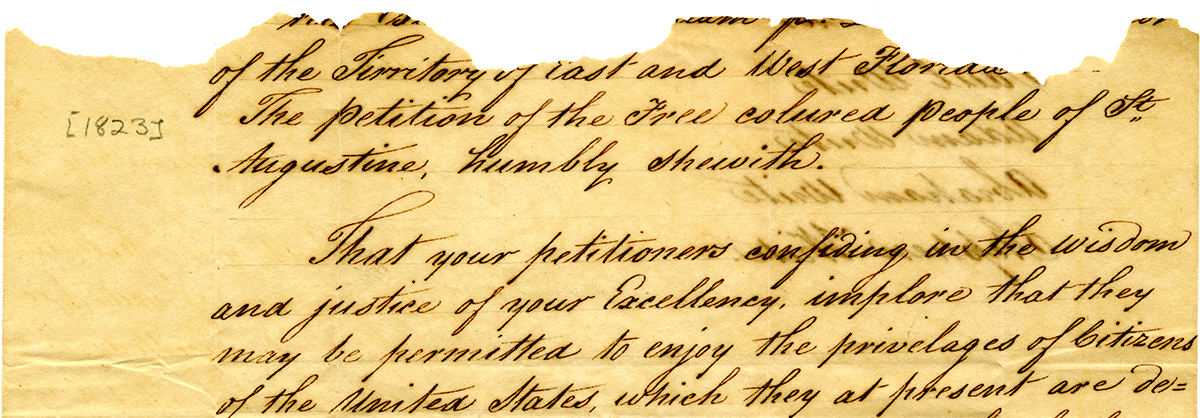 of the Territory of East and West Florida
[1823]
The petition of the Free colured people of St.
Augustine, humbly shewith.
That your petitioners confiding in the wisdom
and justice of your Excellency, implore that they
may be permitted to enjoy the privelages of Citizens
of the United States, which they at present are de=